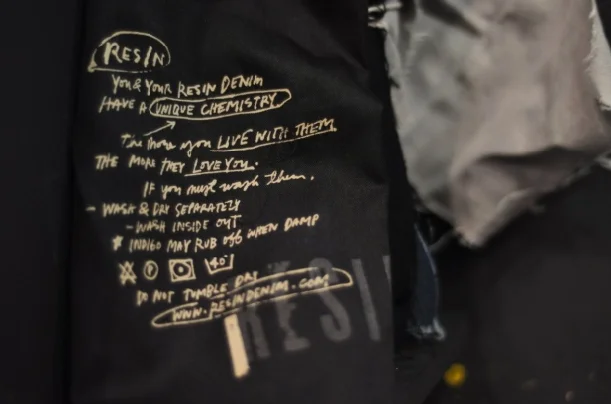 RESIN
YOU & YOUR RESIN DENIM
HAVE A UNIQUE CHEMISTRY
The more you LIVE WITH THEM.
THE MORE THEY LOVE YOU.
If you must wash them.
- WASH & DRY SEPARATELY
- WASH INSIDE OUT
* INDIGO MAY RUB OFF WHEN DAMP
P 40°
DO NOT TUMBLE DRY
WWW.RESINDENIM.COM
RESI